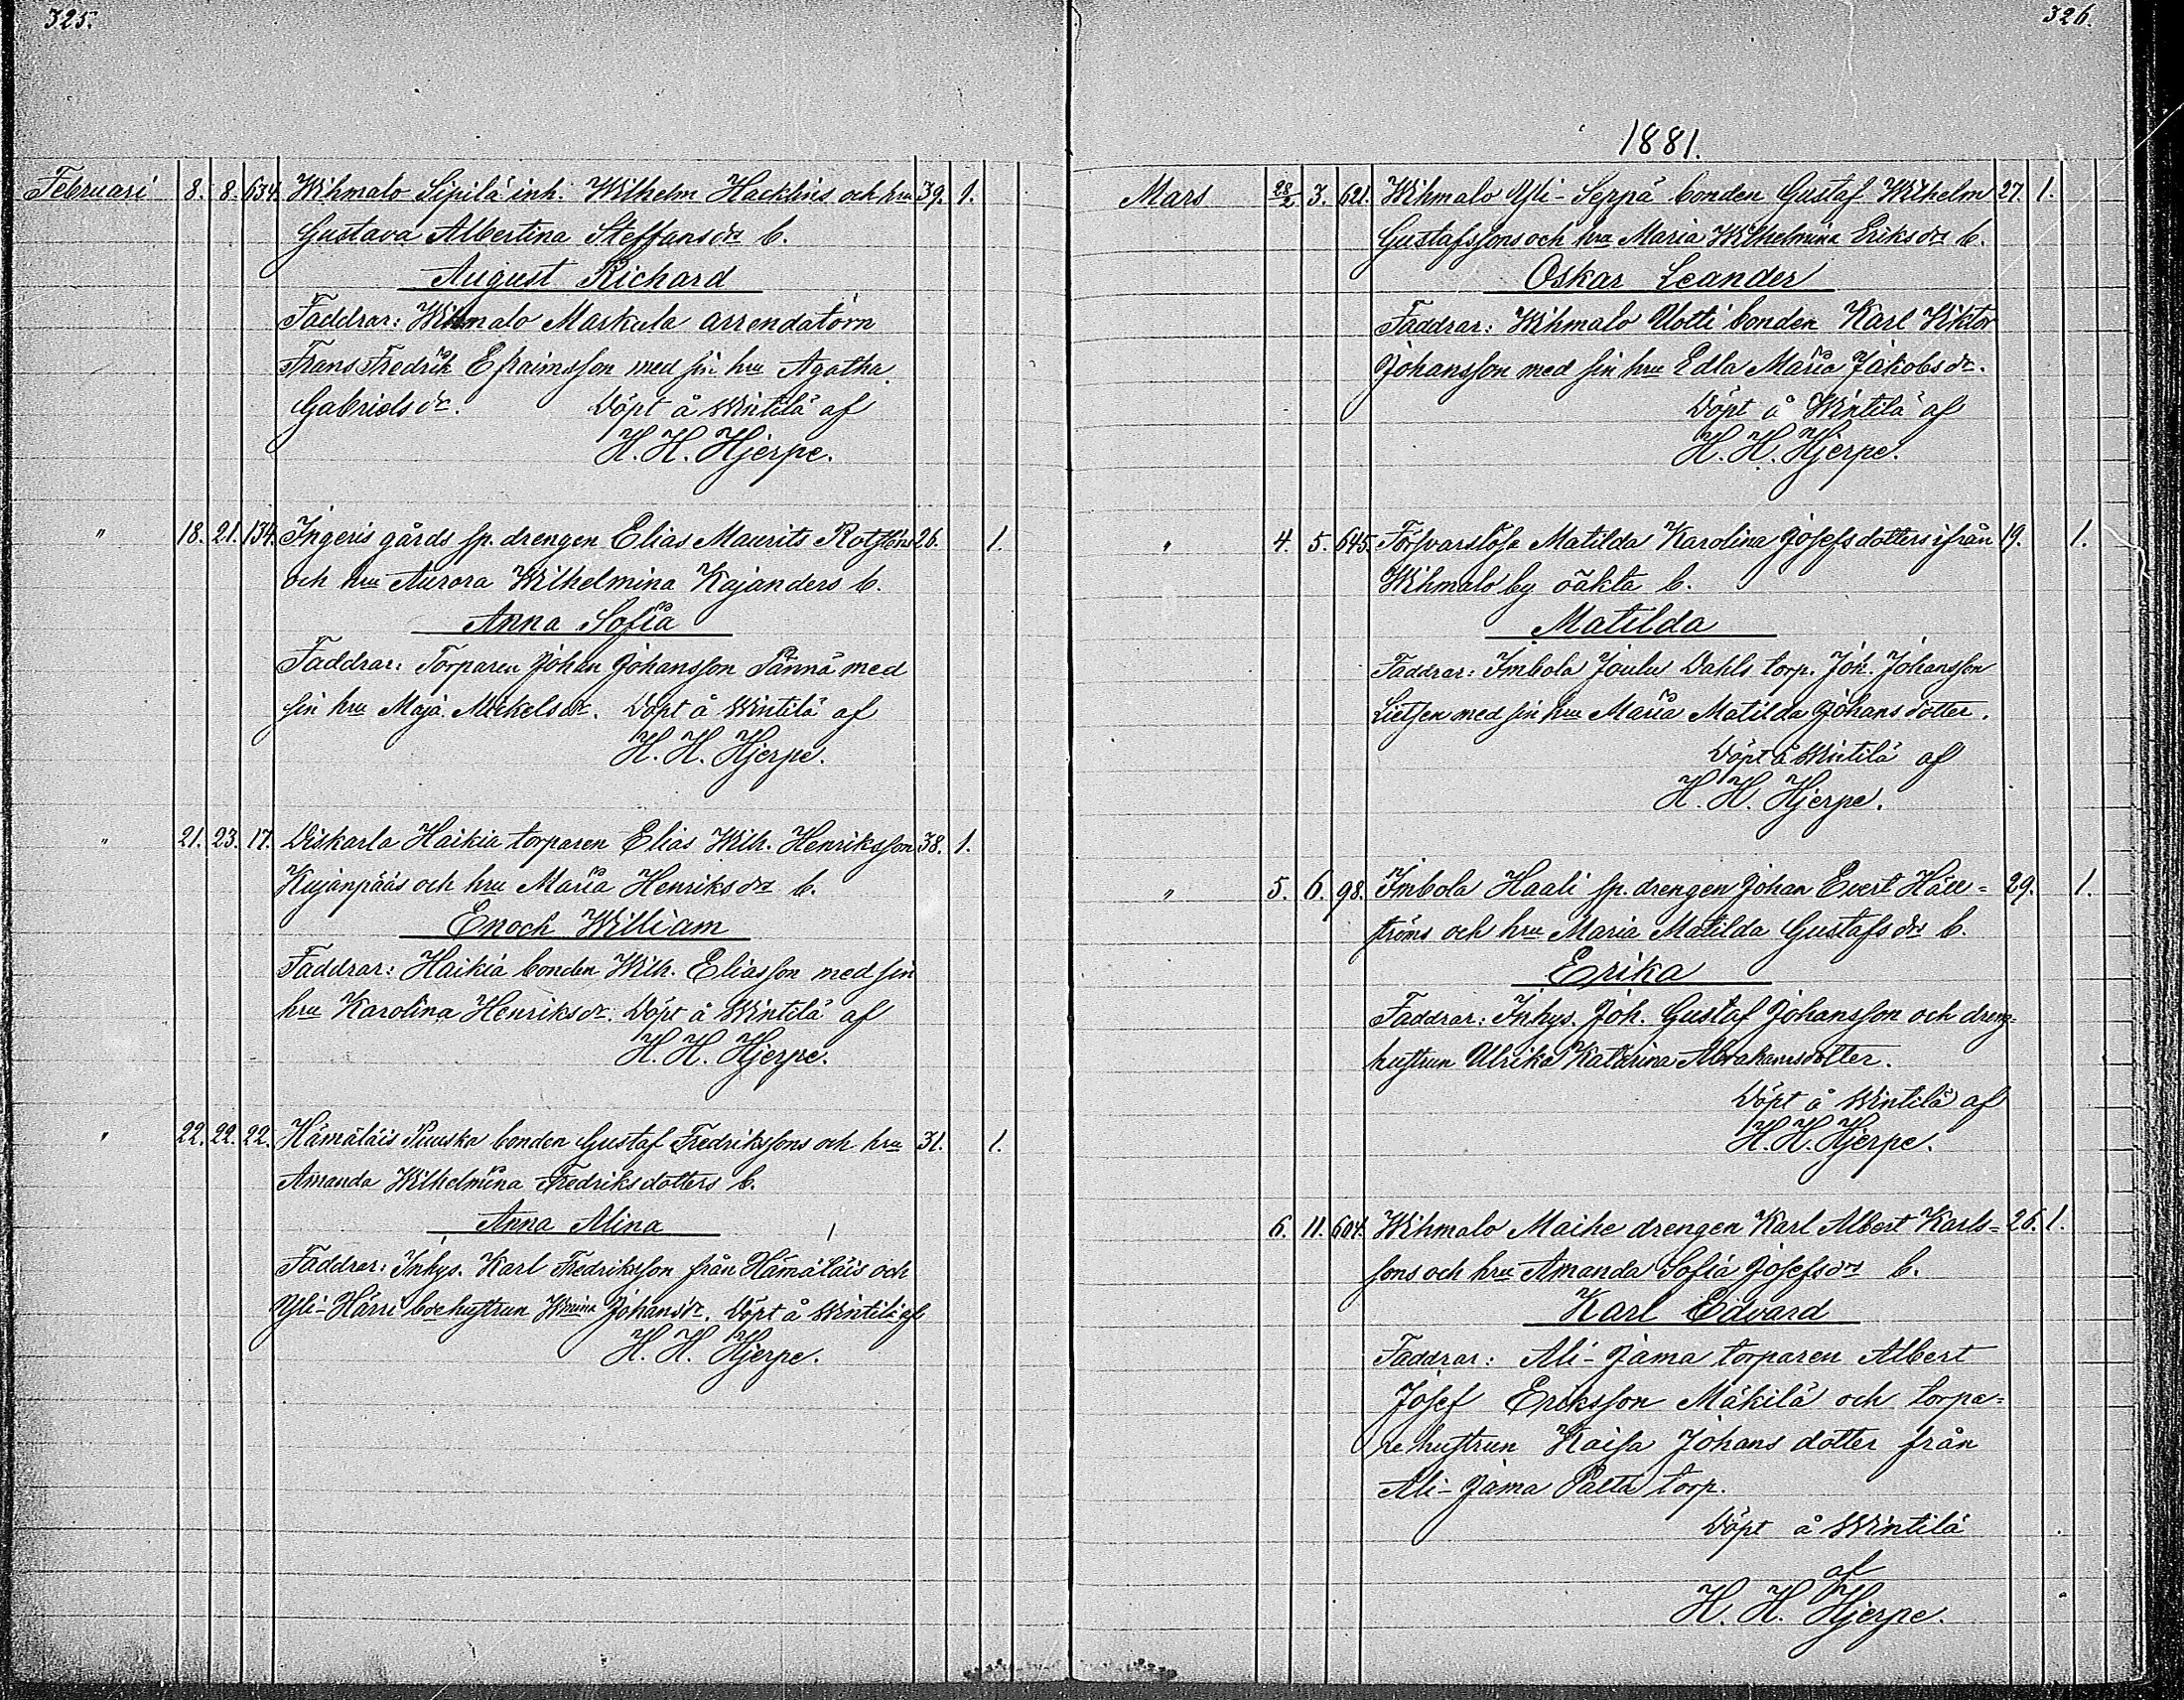 325.
Februari 8. 8. 634. Wihmalo Sipilä inh. Wilhelm Hacklins och hru 39. 1.
Gustava Albertina Steffansdrs b.
August Richard
Faddrar: Wihmalo Markula arrendatorn
Frans Fredrik Efraimsson med sin hru Agatha
Gabrielsdr. Döpt å Wintilä af
H. H. Hjerpe.
" 18. 21. 134. Ingeris gårds sp. drengen Elias Maurits 26. 1.
och hru Aurora Wilhelmina Kajanders b.
Anna Sofia
Faddrar: Torparen Johan Johansson Pännä med
sin hru Maja Mickelsdr. Döpt å Wintilä af
H. H. Hjerpe.
" 21. 23. 17. Diskarla Haikia torparen Elias Wilh. Henriksson 38. 1.
Kujanpääs och hru Maria Henriksdrs b.
Enoch William
Faddrar: Haikia bonden Wilh. Eliasson med sin
hru Karolina Henriksdr. Döpt å Wintilä af
H. H. Hjerpe.
" 22. 22. 22. Hämäläis Puuska bonden Gustaf Fredrikssons och hru 31. 1.
Amanda Wilhelmina Fredriksdotters b.
Anna Alina
Faddrar: Inhys. Karl Fredriksson från Hämäläis och
Yli-Härri bdehustrun Wmina Johansdr. Döpt å Wintilä af
H. H. Hjerpe.
326.
1881.
Mars 28/2 3. 621. Wihmalo Yli-Seppä bonden Gustaf Wilhelm 27. 1.
Gustafssons och hru Maria Wilhelmina Eriksdrs b.
Oskar Leander
Faddrar: Wihmalo Uotti bonden Karl Viktor
Johansson med sin hru Edla Maria Jakobsdr.
Döpt å Wintilä af
H. H. Hjerpe.
" 4. 5. 645. Försvarslösa Matilda Karolina Josefsdotters ifrån 19. 1.
Wihmalo by oäkta b.
Matilda
Faddrar: Imbola Joulu Dahls torp. Joh. Johansson
Lietsen med sin hru Maria Matilda Johansdotter.
Döpt å Wintilä af
H. H. Hjerpe.
" 5. 6. 98. Imbola Haali sp. drengen Johan Evert Häll= 29. 1.
ströms och hru Maria Matilda Gustafsdrs b.
Erika
Faddrar: Inhys. Joh. Gustaf Johansson och dreng=
hustrun Ulrika Katarina Abrahamsdotter.
Döpt å Wintilä af
H. H. Hjerpe.
6. 11. 604. Wihmalo Maihe drengen Karl Albert Karls= 26. 1.
sons och hru Amanda Sofia Josefsdrs b.
Karl Edvard
Faddrar: Ali-Jama torparen Albert
Josef Eriksson Mäkilä och torpa=
rehustrun Kaisa Johansdotter från
Ali-Jama Palta torp.
Döpt å Wintilä
af
H. H. Hjerpe.